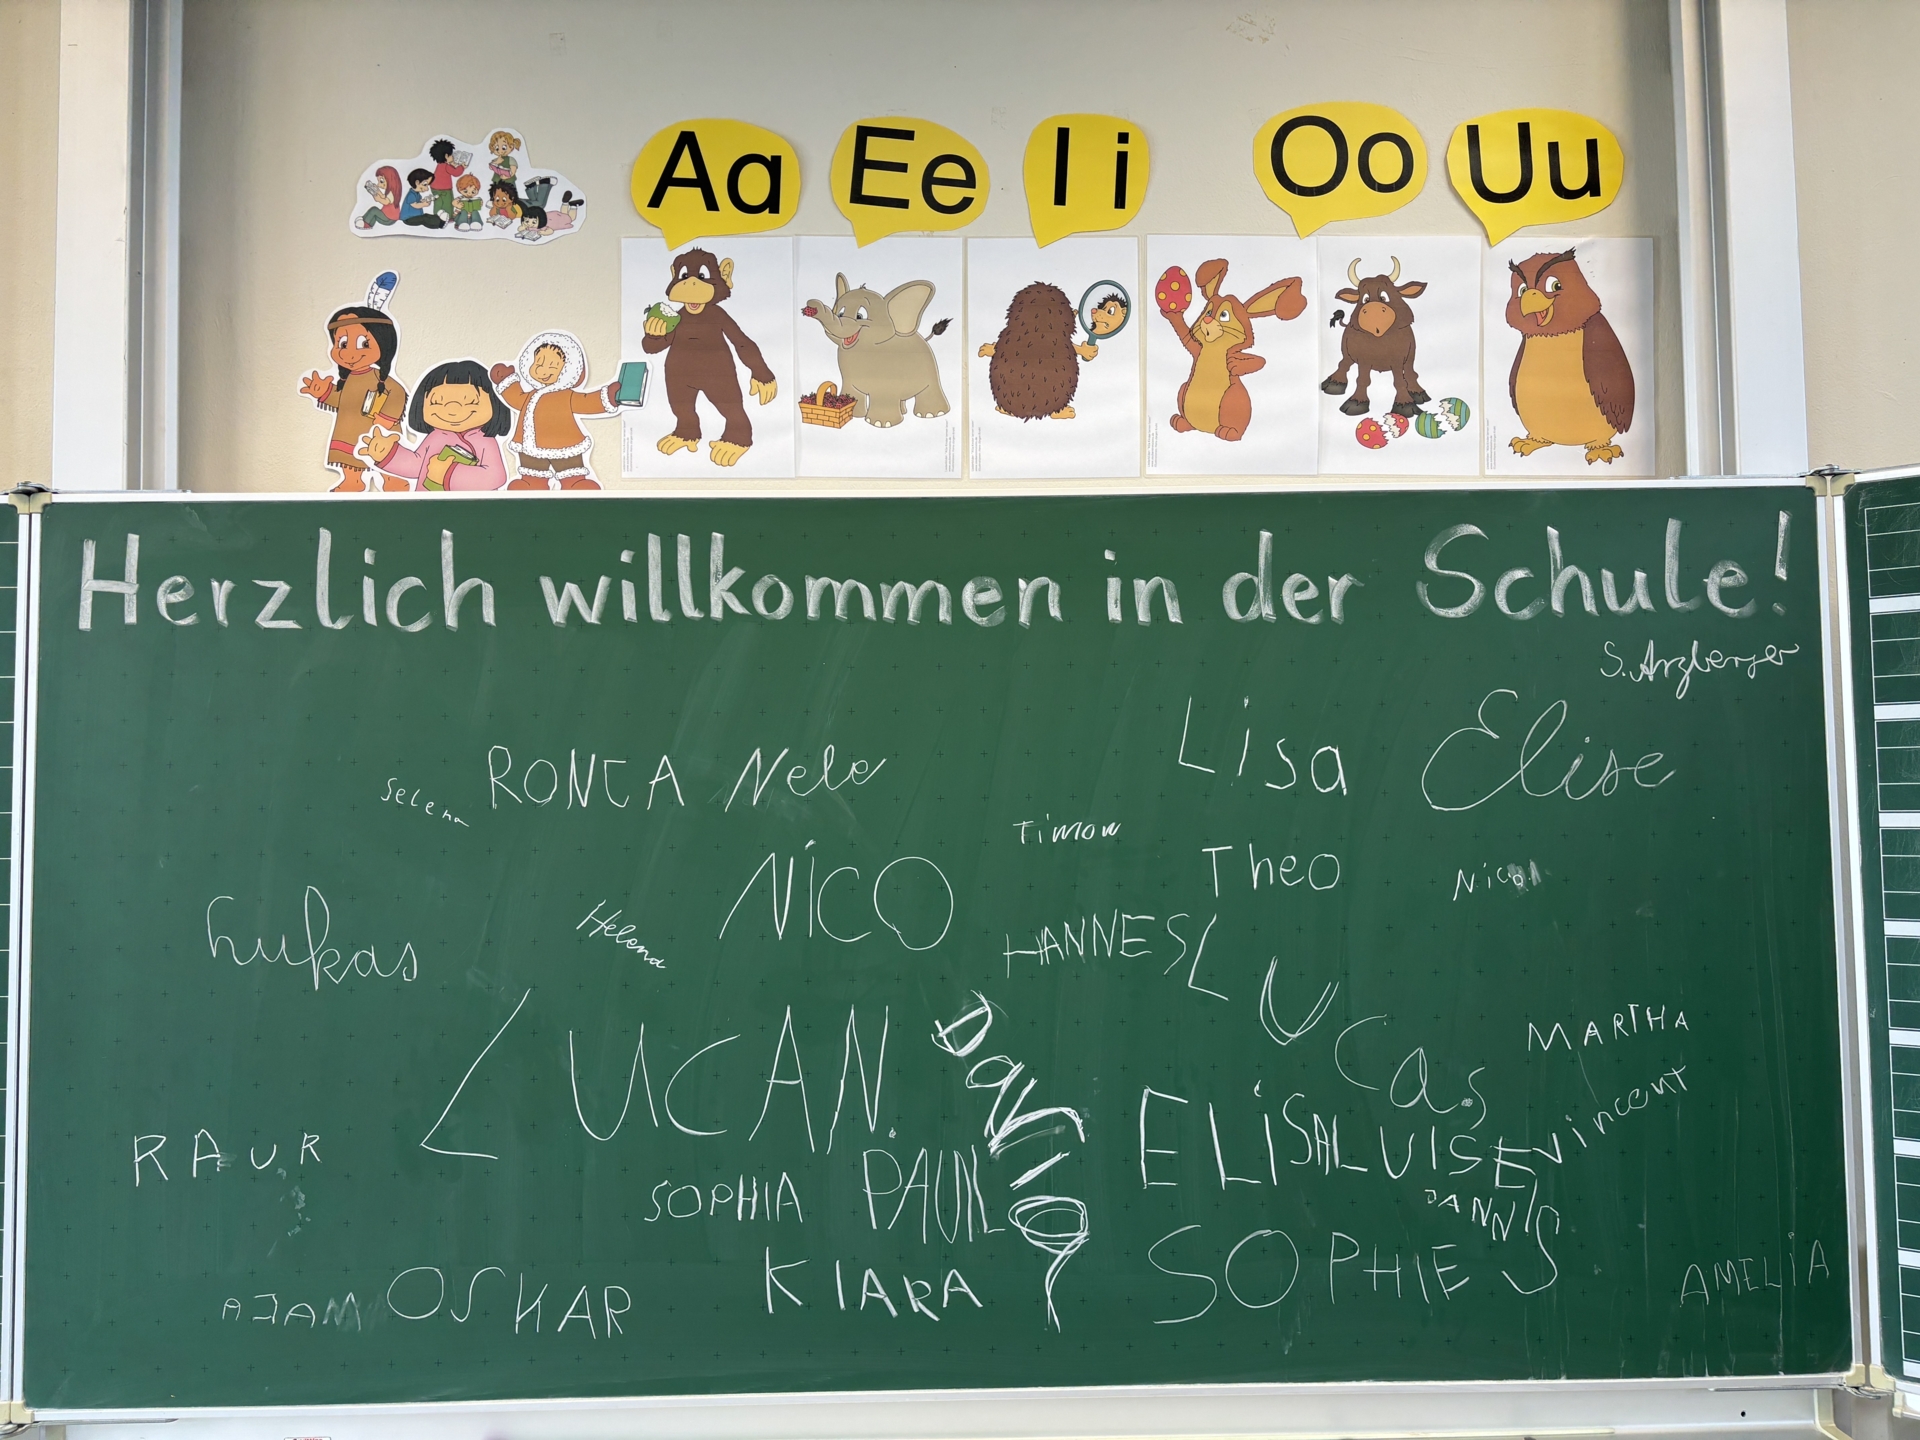 Aa Ee Ii Oo Uu
Herzlich willkommen in der Schule!
S. Arzberger
Selena RONJA Nele Lisa Elise
Timon Theo Nico
Lukas Helena NICO HANNES LUCas
LUCAN Dario MARTHA
RAUR SOPHIA PAUL ELISALUISE vincent
JANNIS
AJAM OSKAR KIARA SOPHIE AMELIA